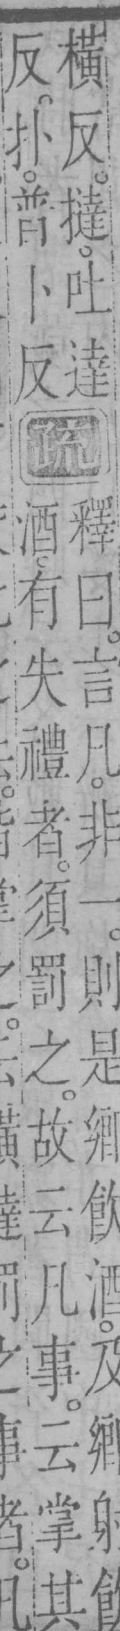 橫反。撻。吐達
反。扑。普卜反
疏
釋曰。言凡。非一。則是鄉飲酒。及鄉射飲
酒。有失禮者。須罰之。故云凡事。云掌其